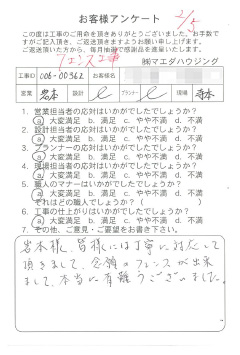 お客様アンケート
2/5
この度は工事のご用命を頂きありがとうございました。お手数で
すがご記入頂き、ご返送頂きますようお願い申し上げます。
ご返送頂いた方から、毎月抽選で感謝品を進呈します。
フェンス工事
㈱マエダハウジング
工事ID 006-00362 お客様名
営業 岩本 設計 プランナー 現場 森本
1. 営業担当者の応対はいかがでしたでしょうか?
a 大変満足 b. 満足 c. やや不満 d. 不満
2. 設計担当者の応対はいかがでしたでしょうか?
a. 大変満足 b. 満足 c. やや不満 d. 不満
3. プランナーの応対はいかがでしたでしょうか?
a. 大変満足 b. 満足 c. やや不満 d. 不満
4. 現場担当者の応対はいかがでしたでしょうか?
a 大変満足 b. 満足 c. やや不満 d. 不満
5. 職人のマナーはいかがでしたでしょうか?
a 大変満足 b. 満足 c. やや不満 d. 不満
それはどの職人でしょうか?( )
6. 工事の仕上がりはいかがでしたでしょうか?
a 大変満足 b. 満足 c. やや不満 d. 不満
7. その他、ご意見・ご要望をお書き下さい。
岩本様、皆様には丁寧に対応して
頂きまして、念願のフェンスが出来
まして、本当に有難うございました。